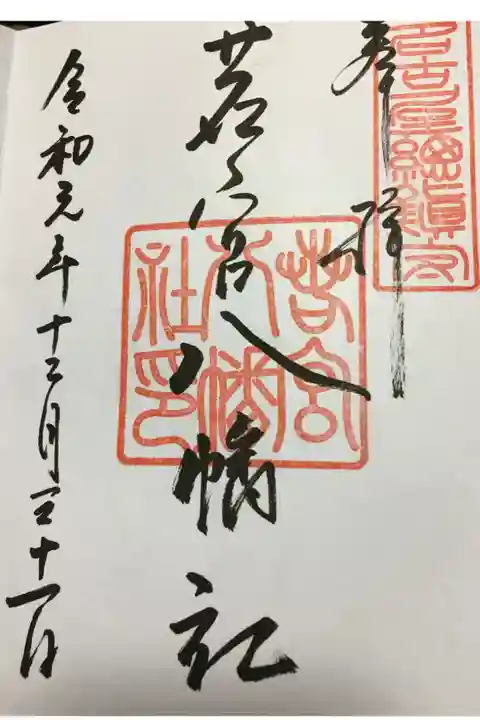 奉拝
名古屋總鎮守
若宮八幡社
若宮
八幡
社印
令和元年十二月三十一日